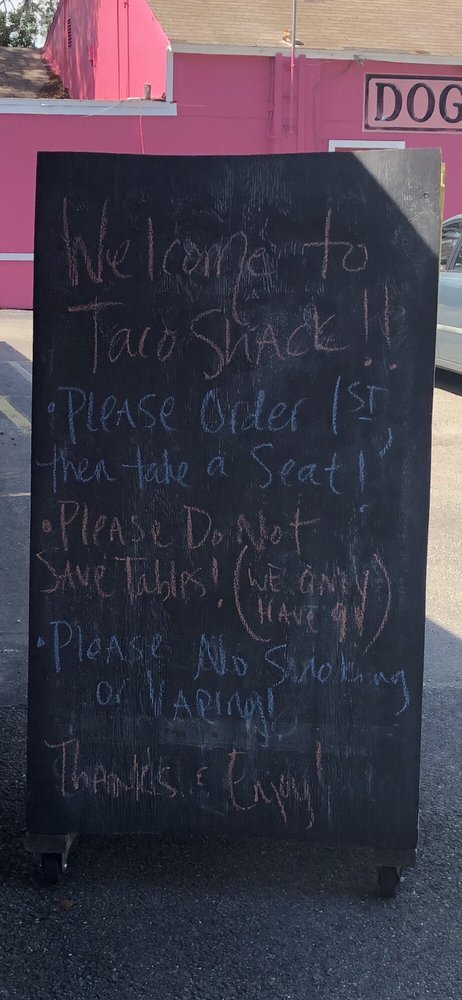 DOG
Welcome to
Taco Shack!!
• Please Order 1st,
then take a Seat!
• Please Do Not
Save Tables! (We only
Have 9)
• Please No Smoking
or Vaping!
Thanks & Enjoy!